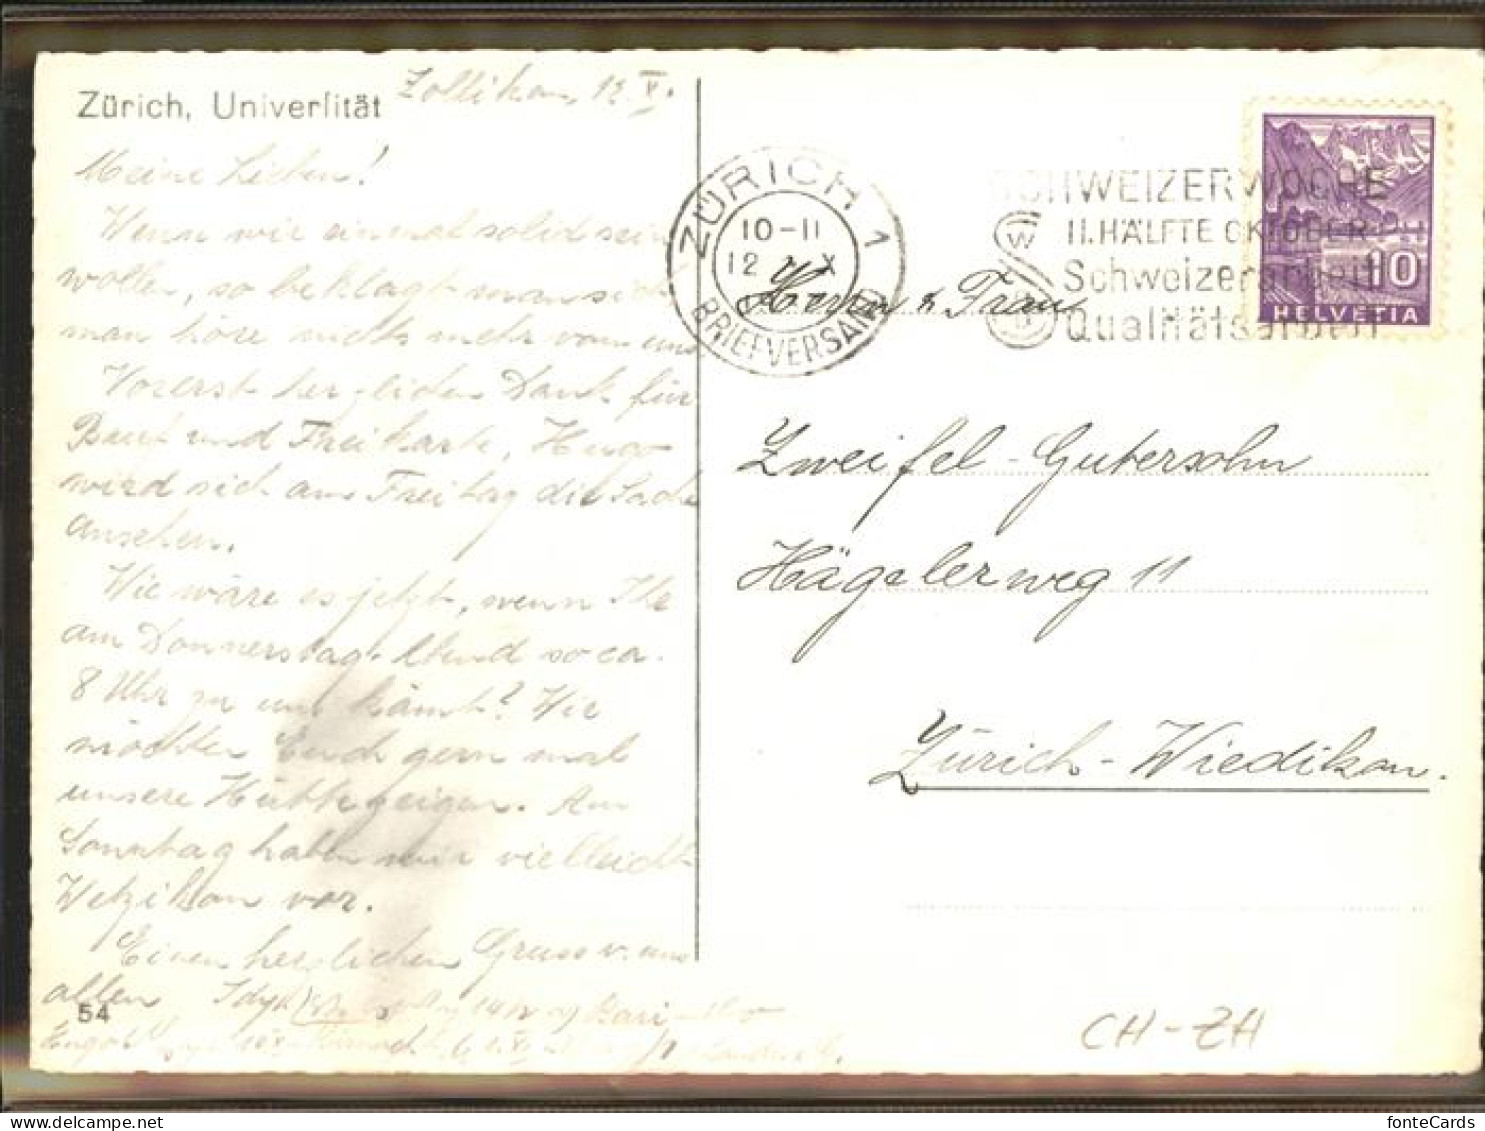 Zürich, Univerſität
Zollikon, 12. X.
Meine Lieben!
Wenn wir einmal solid sein
wollen, so beklagt man sich
man höre nichts mehr von uns
Vorerst herzlichen Dank für
Brief und Freikarte, Hugo
wird sich am Freitag die Sache
ansehen.
Wie wäre es jetzt, wenn Ihr
am Donnerstag Abend so ca.
8 Uhr zu uns kämt? Wir
möchten Euch gern mal
unsere Hütte zeigen. Am
Sonntag haben wir vielleicht
Wetzikon vor.
Einen herzlichen Gruss v. uns
allen
54
ZÜRICH 1
10-11
12 X
BRIEFVERSAND
SCHWEIZERWOCHE
II. HÄLFTE OKTOBER
Schweizerarbeit
Qualitätsarbeit
10
HELVETIA
Herrn & Frau
Zweifel-Gutersohn
Hägelerweg 11
Zürich-Wiedikon.
CH-ZH
fonteCards